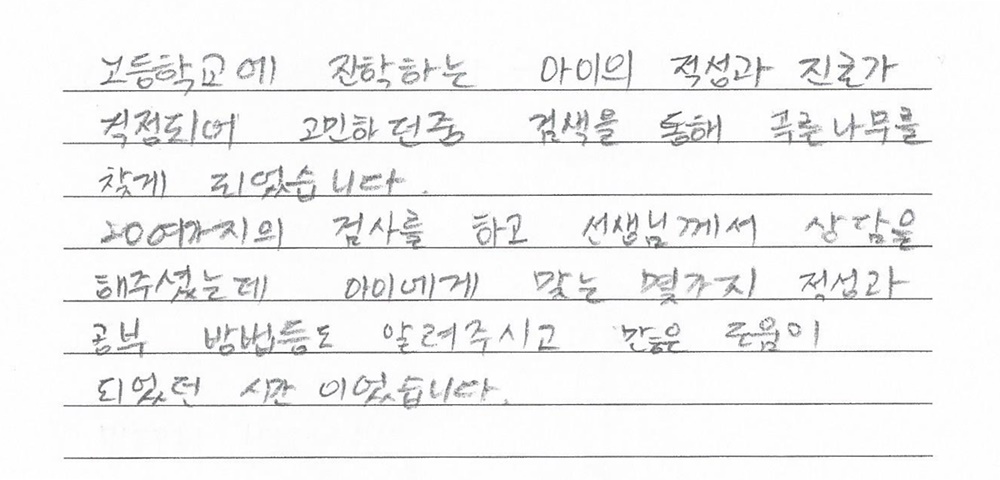 고등학교에 진학하는 아이의 적성과 진로가
걱정되어 고민하던중 검색을 통해 푸른나무를
찾게 되었습니다.
20여가지의 검사를 하고 선생님께서 상담을
해주셨는데 아이에게 맞는 몇가지 적성과
공부 방법등도 알려주시고 많은 도움이
되었던 시간이었습니다.